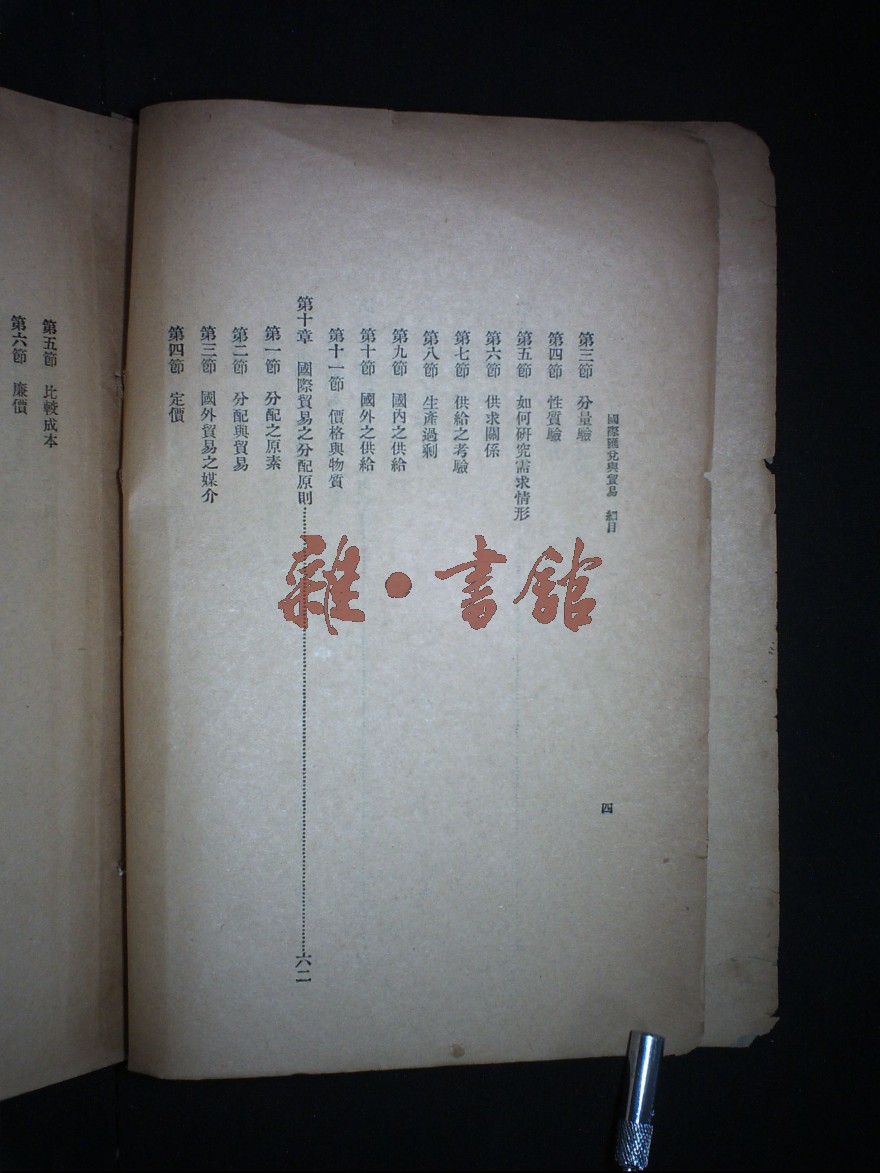 國際匯兌與貿易 細目
四
第三節 分量驗
第四節 性質驗
第五節 如何研究需求情形
第六節 供求關係
第七節 供給之考驗
第八節 生產過剩
第九節 國內之供給
第十節 國外之供給
第十一節 價格與物質
第十章 國際貿易之分配原則……六二
第一節 分配之原素
第二節 分配與貿易
第三節 國外貿易之媒介
第四節 定價
第五節 比較成本
第六節 廉價
雜·書館